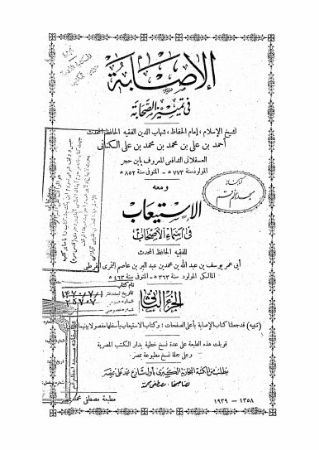 الإصابة
في تمييز الصحابة
لشيخ الإسلام، إمام الحفاظ، شهاب الدين الفقيه الحافظ المحدث
أحمد بن علي بن محمد بن محمد بن علي الكناني
العسقلاني الشافعي المعروف بابن حجر
المولود سنة ٧٧٣ه – المتوفى سنة ٨٥٢ه
ومعه
الاستيعاب
في أسماء الأصحاب
للفقيه الحافظ المحدث
أبي عمر يوسف بن عبد الله بن محمد بن عبد البر بن عاصم النمري القرطبي
المالكي المولود سنة ٣٦٣ه – المتوفى سنة ٤٦٣ه
(تنبيه) قد جعلنا كتاب الإصابة بأعلى الصفحات، وكتاب الاستيعاب بأسفلها مفصولا بينهما
قوبلت هذه الطبعة على عدة نسخ خطية بدار الكتب المصرية
وعلى جملة نسخ مطبوعة بمصر
يطلب من المكتبة التجارية الكبرى بأول شارع محمد علي بمصر
لصاحبها مصطفى محمد
١٣٥٨ – ١٩٣٩
مطبعة مصطفى محمد